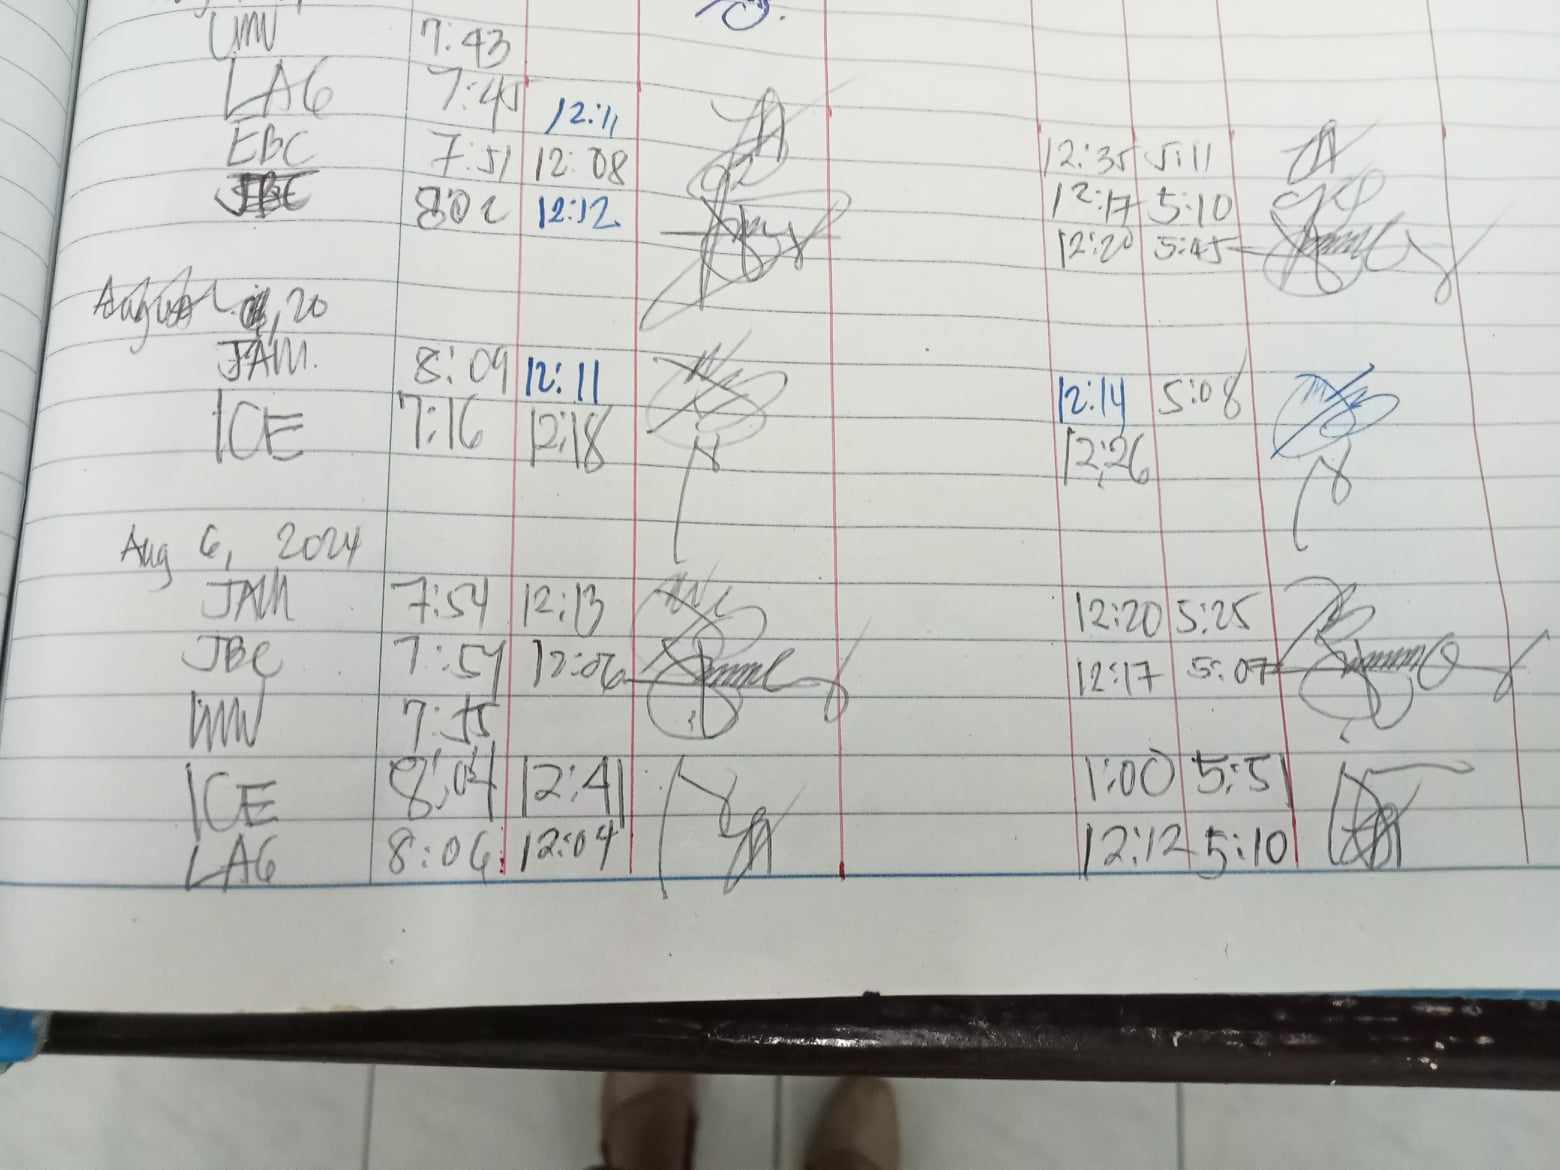 7:43
LAG 7:45 12:11 12:35 5:11
EBC 7:51 12:08 12:17 5:10
JBC 8:02 12:12 12:20 5:45
August , 20
JAM. 8:09 12:11 12:14 5:08
ICE 7:16 12:18 12:26
Aug 6, 2024
JAM 7:54 12:13 12:20 5:25
JBC 7:54 12:06 12:17 5:07
7:55
ICE 8:04 12:41 1:00 5:51
LAG 8:06 12:04 12:12 5:10